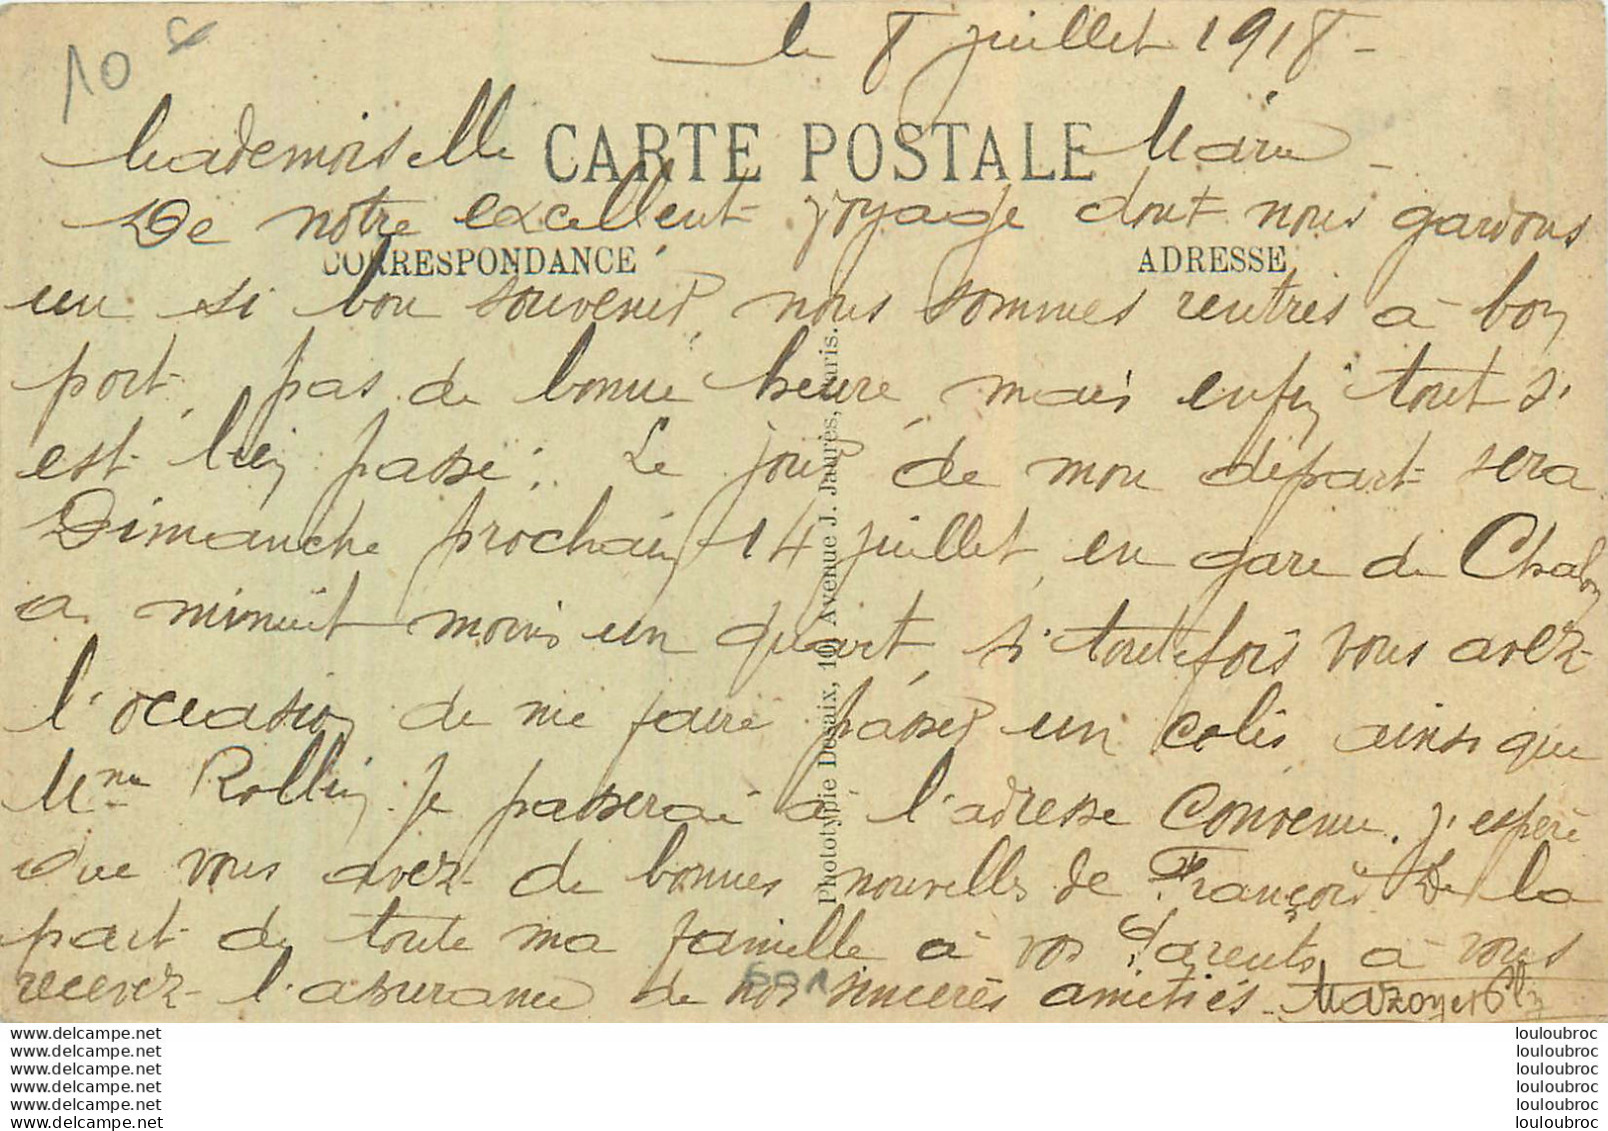 10
le 8 juillet 1918 -
Mademoiselle Marie -
CARTE POSTALE
De notre excellent voyage dont nous gardons
CORRESPONDANCE
ADRESSE
un si bon souvenir, nous sommes rentrés à bon
port, pas de bonne heure, mais enfin tout s'
est bien passé. Le jour de mon départ sera
Dimanche prochain 14 juillet, en gare de Chalon
a minuit moins un quart, si toutefois vous avez
l'occasion de me faire passer un colis ainsi que
Mme Rollin. Je passerai à l'adresse convenue. J'espère
que vous avez de bonnes nouvelles de François De la
part de toute ma famille à vos Parents, à vous
recevez l'assurance de nos sincères amitiés - Mazoyer
Phototypie Desaix, 101 Avenue J. Jaurès, Paris.
www.delcampe.net louloubroc
www.delcampe.net louloubroc
www.delcampe.net louloubroc
www.delcampe.net louloubroc
www.delcampe.net louloubroc
www.delcampe.net louloubroc